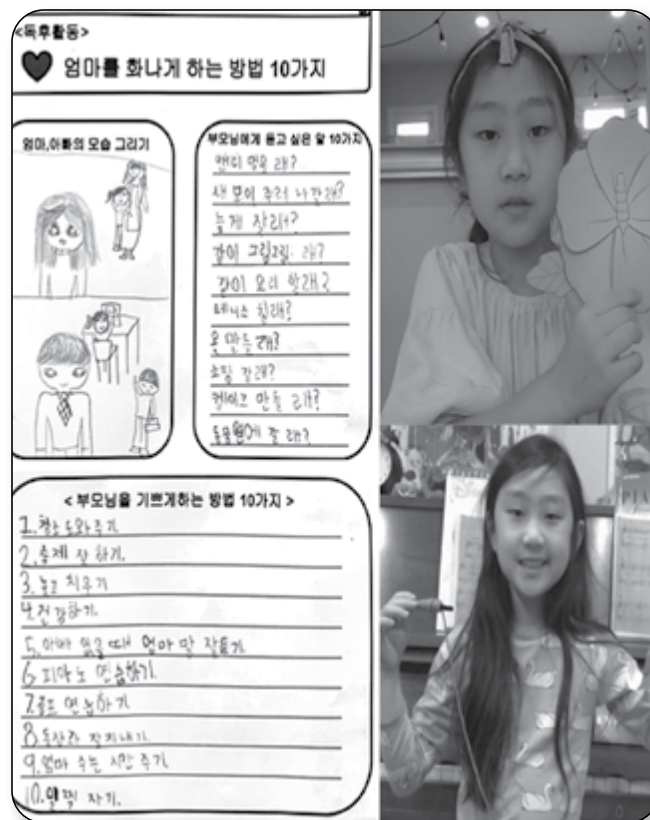 <독후활동>
엄마를 화나게 하는 방법 10가지
엄마,아빠의 모습 그리기
부모님에게 듣고 싶은 말 10가지
캔디 먹을래?
새 모이 주러 나갈래?
늦게 잘래?
같이 그림그릴래?
같이 요리 할래?
테니스 칠래?
옷 만들래?
쇼핑 갈래?
케이크 만들래?
동물원에 갈래?
<부모님을 기쁘게하는 방법 10가지>
1.청소 도와주기
2.숙제 잘 하기.
3.놀고 치우기
4.건강하기.
5.아빠 없을때 엄마 말 잘듣기.
6.피아노 연습하기.
7.골프 연습하기
8.동생과 잘지내기.
9.엄마 쉬는 시간 주기.
10.일찍 자기.